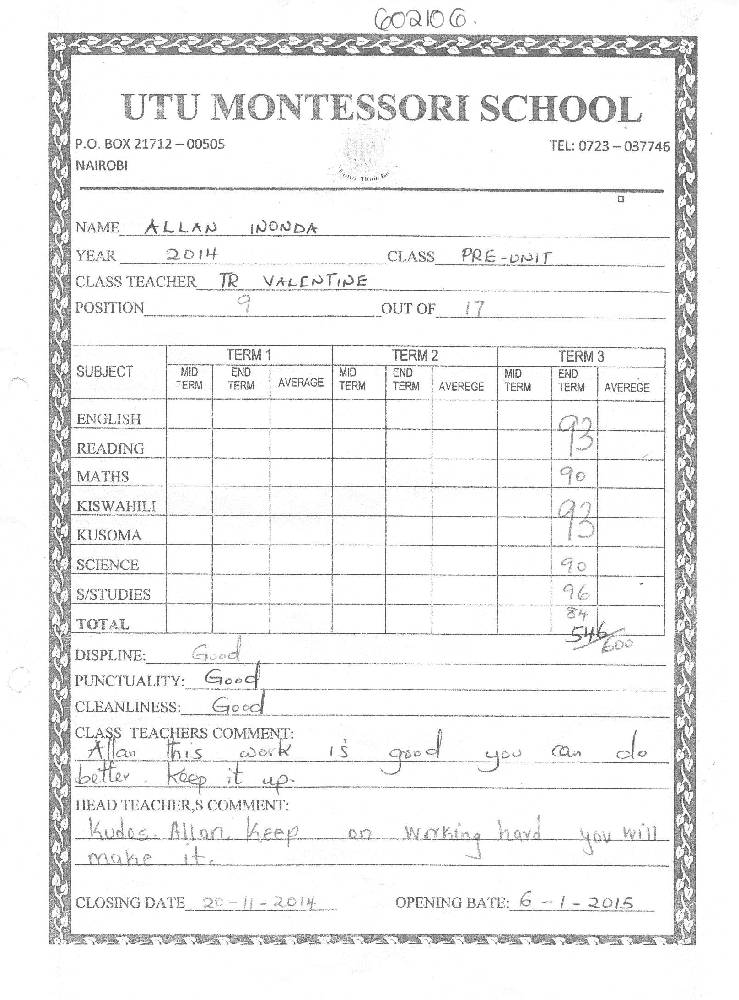 602106.
UTU MONTESSORI SCHOOL
P.O. BOX 21712 – 00505 TEL: 0723 – 037746
NAIROBI
NAME ALLAN INONDA
YEAR 2014 CLASS PRE-UNIT
CLASS TEACHER TR VALENTINE
POSITION 9 OUT OF 17
SUBJECT TERM 1 TERM 2 TERM 3
MID TERM END TERM AVERAGE MID TERM END TERM AVEREGE MID TERM END TERM AVEREGE
ENGLISH
READING 93
MATHS 90
KISWAHILI
KUSOMA 93
SCIENCE 90
S/STUDIES 96
84
TOTAL 546/600
DISPLINE: Good
PUNCTUALITY: Good
CLEANLINESS: Good
CLASS TEACHERS COMMENT:
Allan this work is good you can do
better. Keep it up.
HEAD TEACHER,S COMMENT:
Kudos. Allan. Keep on working hard you will
make it.
CLOSING DATE 20-11-2014 OPENING BATE: 6-1-2015